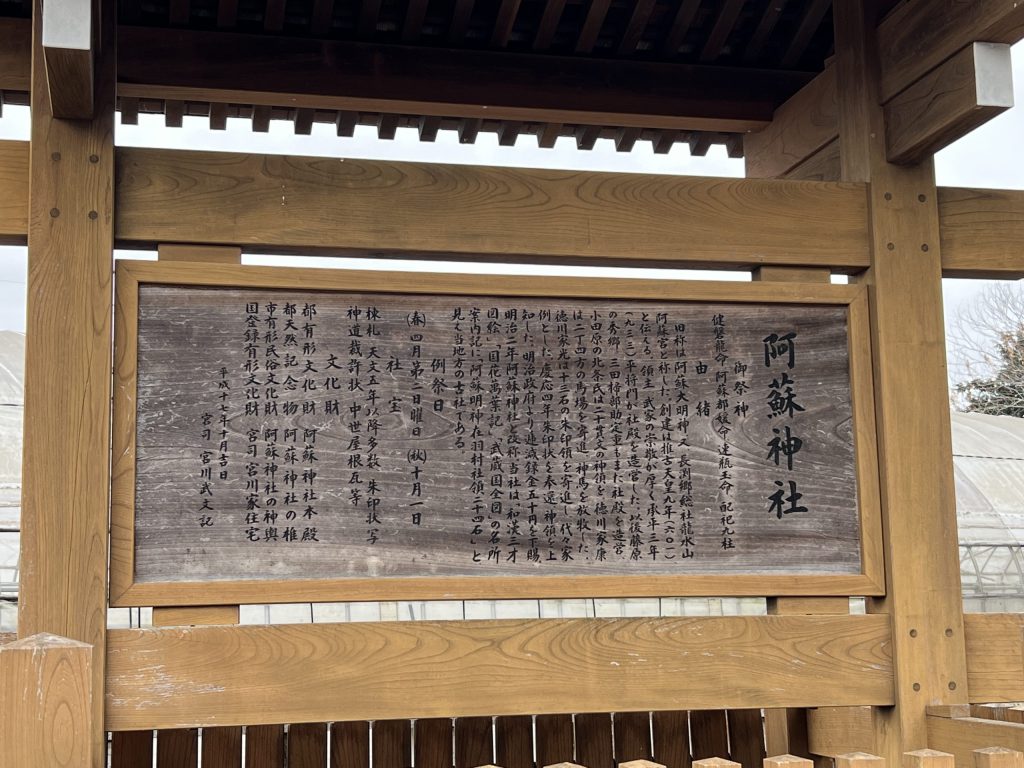 阿蘇神社
御祭神
健磐龍命 阿蘇都媛命 速瓶玉命 配祀九柱
由緒
旧称は阿蘇大明神又、長渕郷総社龍水山
阿蘇宮と称した。創建は推古天皇九年(六〇一)
と伝える。領主、武家の崇敬が厚く承平三年
(九三三)平将門が社殿を造営した。以後藤原
の秀郷、三田弾正定重もまた社殿を造営、
小田原の北条氏は二十貫文の神領を、徳川家康
は二丁四方の馬場を寄進、神馬を放牧した。
徳川家光は十三石の朱印領を寄進し、代々家
例とした。慶応四年、朱印状を奉還、神領を上
知した。明治政府より逓減録金五十円を下賜、
明治二年阿蘇神社と改称。当社は和漢三才
図絵、「国花萬葉記」「武蔵国全図」の名所
案内記に「阿蘇明神在羽村社領二十四石」と
見え当地方の古社である。
例祭日
(春)四月第二日曜日 (秋)十月一日
社宝
棟札 天文五年以降多数 朱印状写
神道裁許状 中世屋根瓦 等
文化財
都有形文化財 阿蘇神社本殿
都天然記念物 阿蘇神社の椎
市有形民俗文化財 阿蘇神社の神輿
国登録有形文化財 宮司宮川家住宅
平成十七年十月吉日
宮司 宮川武文記